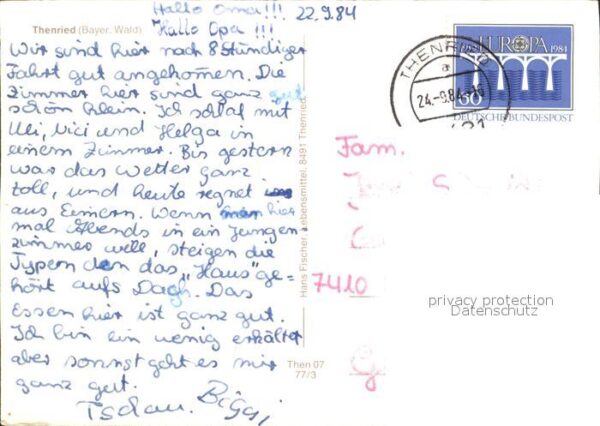 Hallo Oma!!! 22.9.84
Hallo Opa!!!
Thenried (Bayer. Wald)
Wir sind hier nach 8 Stündiger
Fahrt gut angekommen. Die
Zimmer hier sind ganz
schön klein. Ich schlaf mit
Uli, Vici und Helga in
einem Zimmer. Bis gestern
war das Wetter ganz
toll, und heute regnet
aus Eimern. Wenn man hier
mal Abends in ein Jungen
zimmer will, steigen die
Typen den das "Haus" ge-
hört aufs Dach. Das
Essen hier ist ganz gut.
Ich bin ein wenig erkältet
aber sonnst geht es mir
ganz gut.
Tschau. Biggi
Hans Fischer, Lebensmittel, 8491 Thenried
Then 07
77/3
THENRIED
a
24.-9.84
EUROPA
1984
60
DEUTSCHE BUNDESPOST
Fam.
7410
privacy protection
Datenschutz